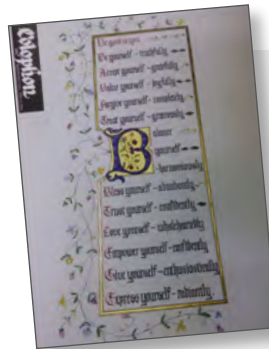 Colophon
Be yourself - truthfully
Accept yourself - gratefully
Value yourself - joyfully
Forgive yourself - completely
Treat yourself - generously
Balance
yourself
- harmoniously
Bless yourself - abundantly
Trust yourself - confidently
Love yourself - wholeheartedly
Empower yourself - confidently
Give yourself - enthusiastically
Express yourself - radiantly